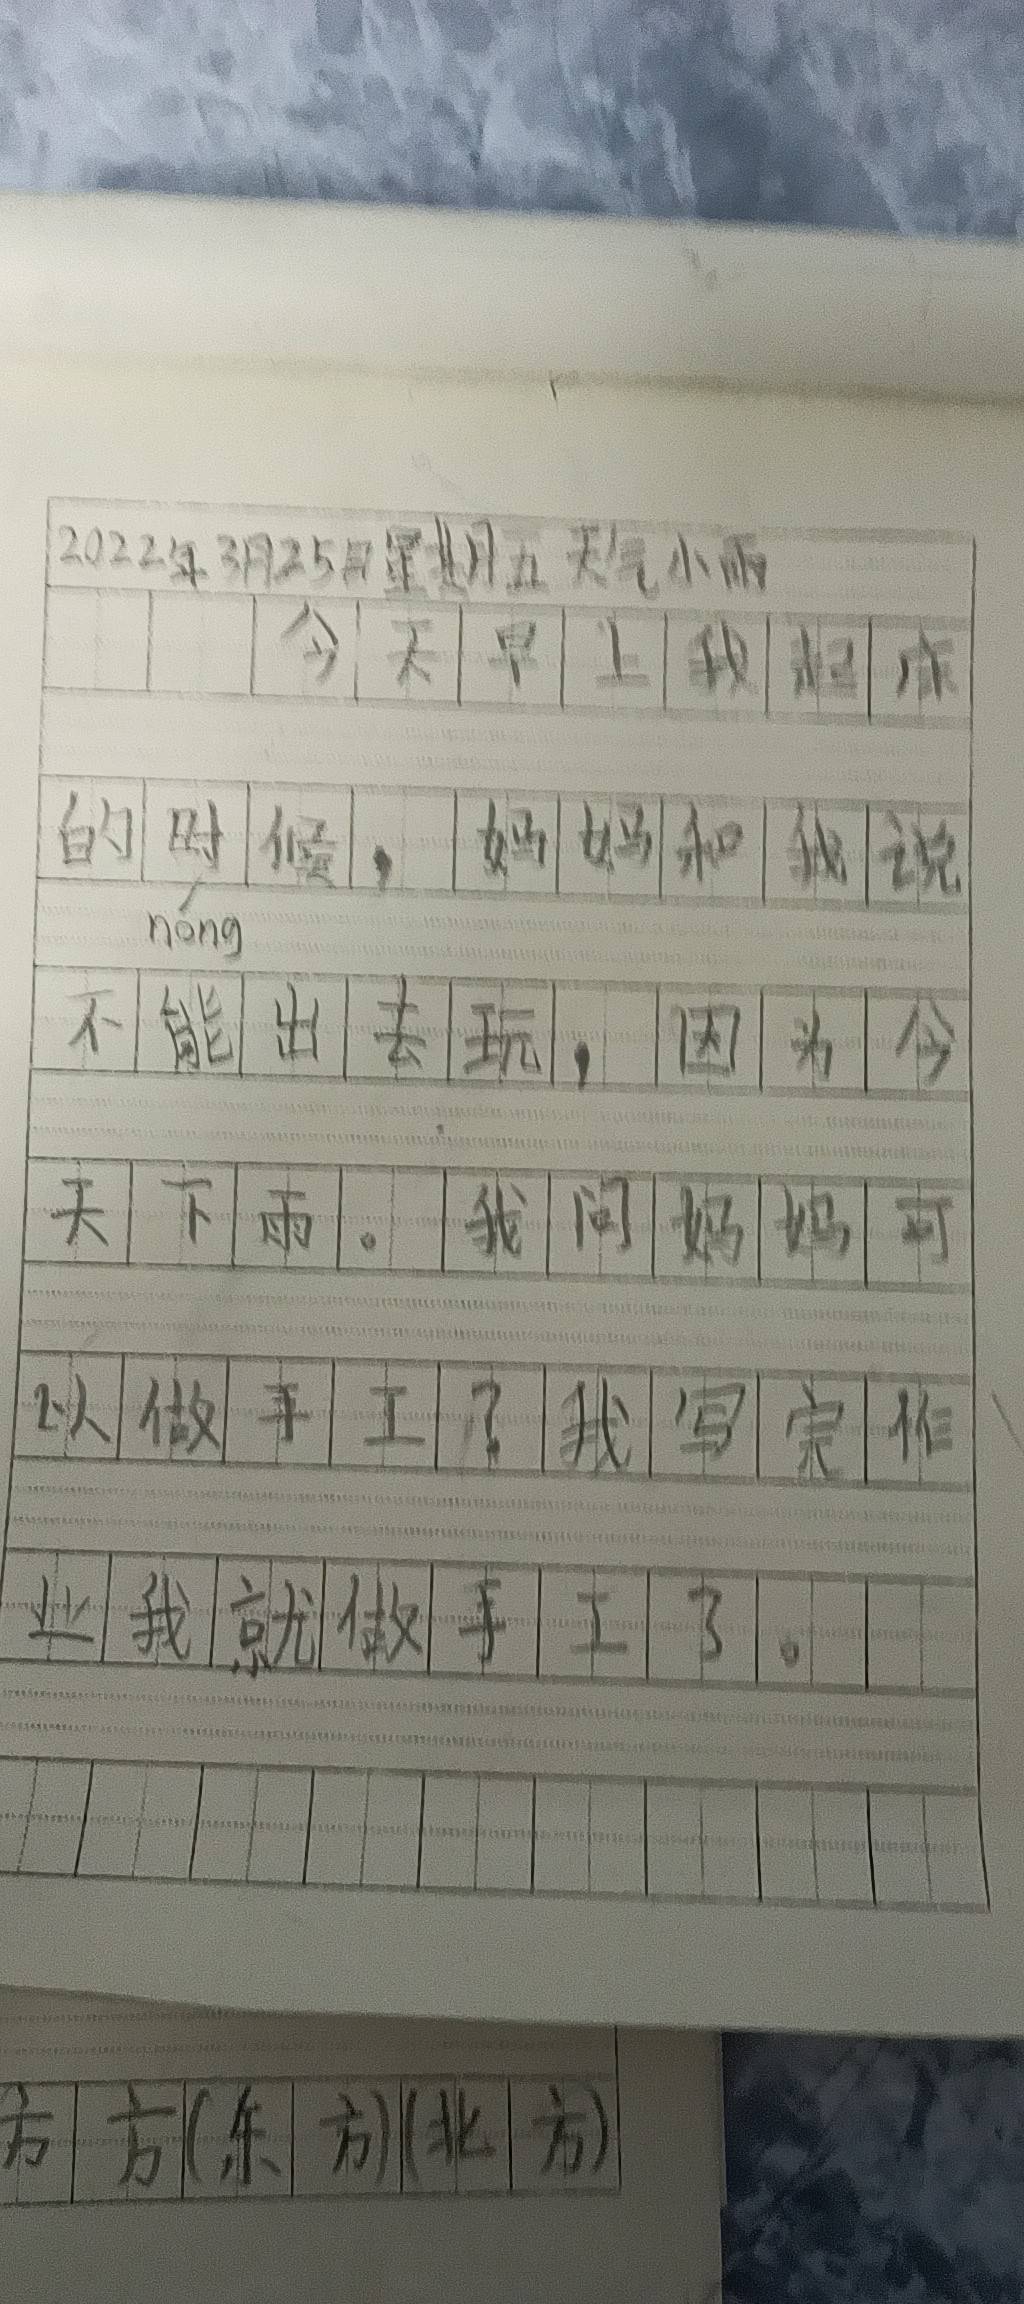 2022年3月25日星期五 天气小雨
今天早上我起床
的时候，妈妈和我说
nóng
不能出去玩，因为今
天下雨。我问妈妈可
以做手工？我写完作
业我就做手工了。
方方(东方)(北方)